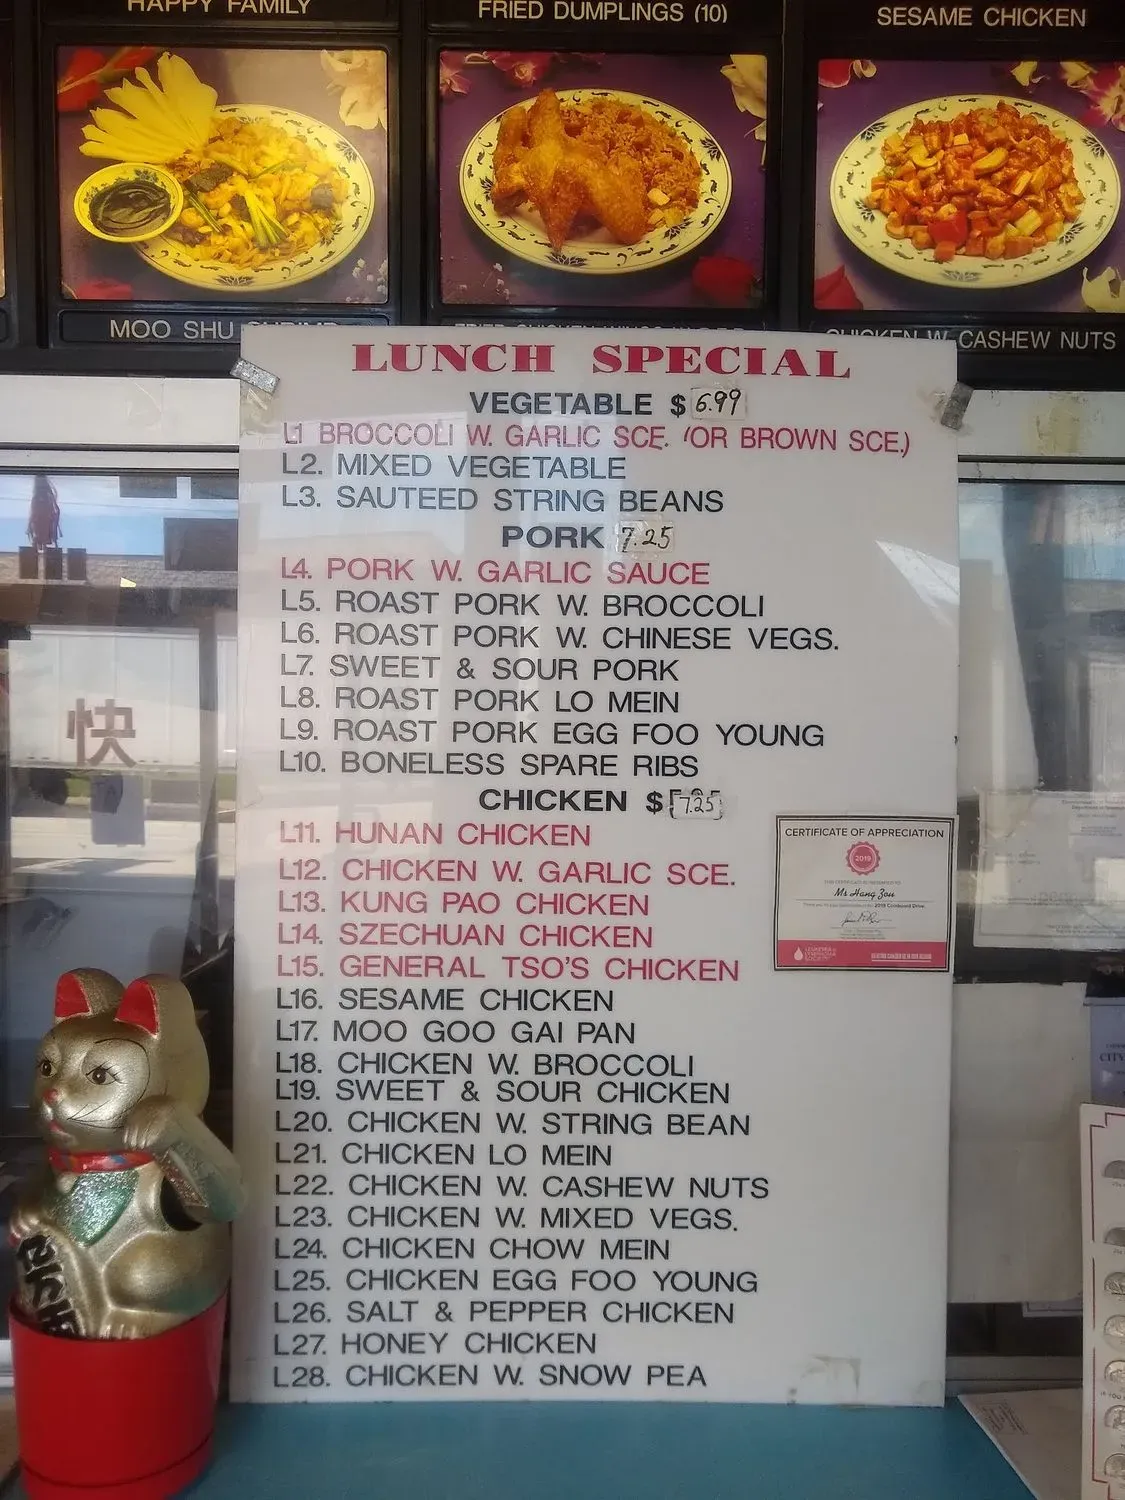 HAPPY FAMILY
FRIED DUMPLINGS (10)
SESAME CHICKEN
MOO SHU SHRIMP
CHICKEN W. CASHEW NUTS
LUNCH SPECIAL
VEGETABLE $ 6.99
L1 BROCCOLI W. GARLIC SCE. (OR BROWN SCE.)
L2. MIXED VEGETABLE
L3. SAUTEED STRING BEANS
PORK 7.25
L4. PORK W. GARLIC SAUCE
L5. ROAST PORK W. BROCCOLI
L6. ROAST PORK W. CHINESE VEGS.
L7. SWEET & SOUR PORK
L8. ROAST PORK LO MEIN
L9. ROAST PORK EGG FOO YOUNG
L10. BONELESS SPARE RIBS
CHICKEN $ 7.25
L11. HUNAN CHICKEN
L12. CHICKEN W. GARLIC SCE.
L13. KUNG PAO CHICKEN
L14. SZECHUAN CHICKEN
L15. GENERAL TSO'S CHICKEN
L16. SESAME CHICKEN
L17. MOO GOO GAI PAN
L18. CHICKEN W. BROCCOLI
L19. SWEET & SOUR CHICKEN
L20. CHICKEN W. STRING BEAN
L21. CHICKEN LO MEIN
L22. CHICKEN W. CASHEW NUTS
L23. CHICKEN W. MIXED VEGS.
L24. CHICKEN CHOW MEIN
L25. CHICKEN EGG FOO YOUNG
L26. SALT & PEPPER CHICKEN
L27. HONEY CHICKEN
L28. CHICKEN W. SNOW PEA
CERTIFICATE OF APPRECIATION
2019
Ms Hang Zou
LEUKEMIA &
LYMPHOMA
SOCIETY
快
CITY